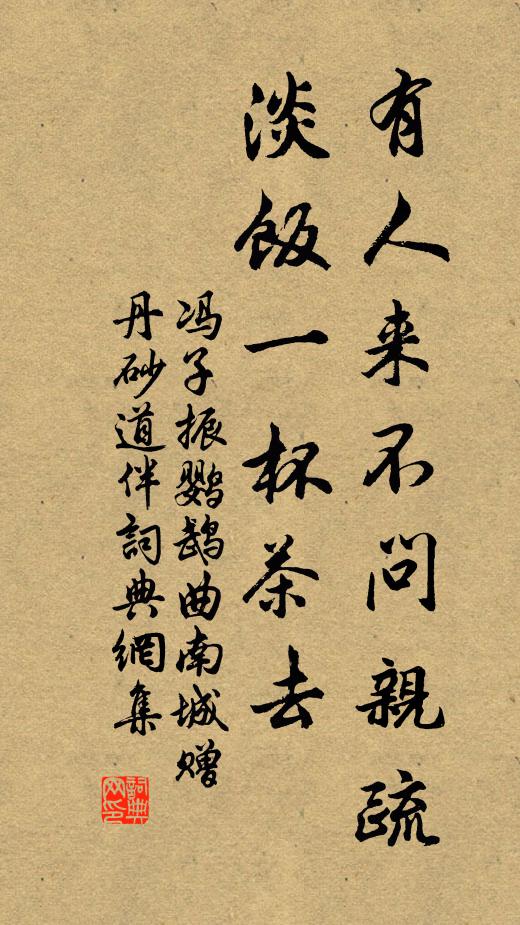 有人来不问親疏
淡飯一杯茶去
冯子振鹦鹉曲南城赠
丹砂道伴詞典網集
詞典网印